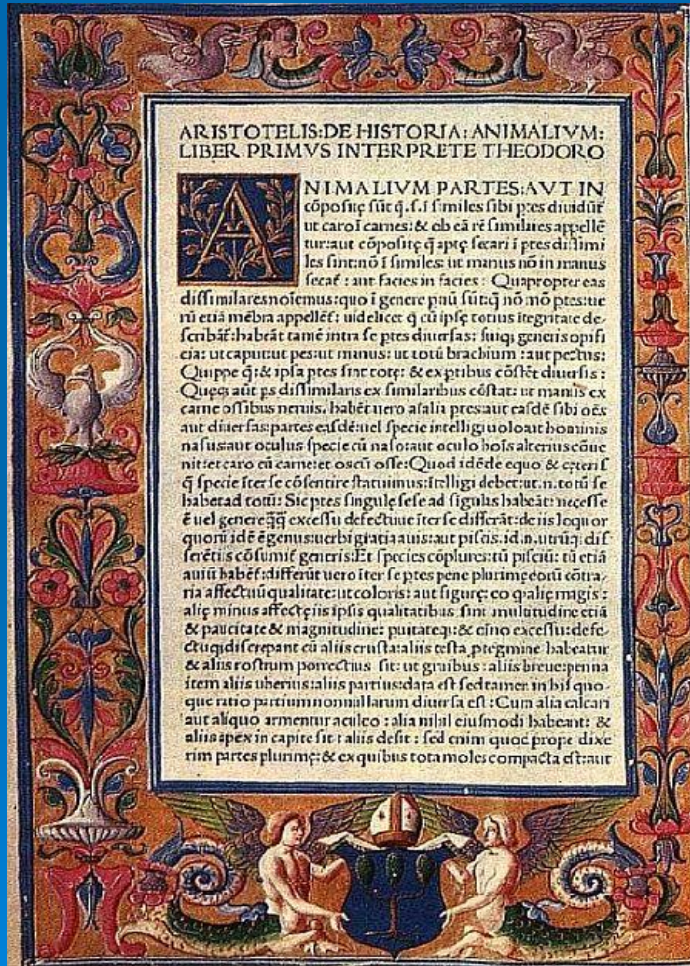 ARISTOTELIS:DE HISTORIA: ANIMALIVM:
LIBER PRIMVS INTERPRETE THEODORO
ANIMALIVM PARTES:AVT IN
cōpositę sūt q̄.s.ī similes sibi ptes dividūt̄
ut caro ī carnes: & ob eā rē similares appellē
tur:aut cōpositę q̄ aptę secari ī ptes dissimi
les sint:nō ī similes: ut manus nō in manus
secat̄ : aut facies in facies : Quapropter eas
dissimilares noīemus:quo ī genere pnū sūt:q̄ nō mō ptes:ue
rū etiā mēbra appellēt̄ : uidelicet q̄ cū ipsę totius itegritate de-
scribāt̄:habeāt tamē intra se ptes diuersas: suiq; generis opifi
cia: ut caput:ut pes:ut manus: ut totū brachium : aut pectus:
Quippe q̄: & ipsa ptes sint totę: & ex ptibus cōstēt diuersis :
Quęq; aūt ps dissimilaris ex similaribus cōstat: ut manus ex
carne ossibus neruis. habēt uero aīalia ptes:aut easdē sibi oēs
aut diuersas: partes easdē:uel specie intelligi uolo:aut hominis
nasus:aut oculus specie cū naso:aut oculo hoīs alterius cōue
nit:et caro cū carne:et os cū osse: Quod idē de equo & cęteris
q̄ specie īter se cōsentire statuimus: ītelligi debet:ut.n.totū se
habet ad totū: Sic ptes singulę sese ad sigulas habeāt: necesse
ē uel genere excessu defectiue īter se differāt: de iis loquor
quorū idē ē genus:uerbi gratia auis:aut piscis.id.n.utrūq; dif
ferētiis cōsumit̄ generis: Et species cōplures: tū pisciū: tū etiā
auiū habēt̄:differūt uero īter se ptes pene plurimę eorū cōtra-
ria affectuū qualitate:ut coloris: aut figurę: eo q̄ alię magis :
alię minus affectę iis ipsis qualitatibus sint multitudine etiā
& paucitate & magnitudine: puitateq;: & oīno excessu: defe-
ctuq; discrepant cū aliis crusta:aliis testa, ptegmine habeatur
& aliis rostrum porrectius sit: ut gruibus : aliis breue:penna
item aliis uberius : aliis partius:data est sed tamen in his quo-
que ratio partium nonnullarum diuersa est : Cum alia calcari
aut aliquo armentur aculeo : alia nihil eiusmodi habeant: &
aliis apex in capite sit : aliis desit : sed enim quod prope dixe
rim partes plurimę: & ex quibus tota moles compacta est:aut